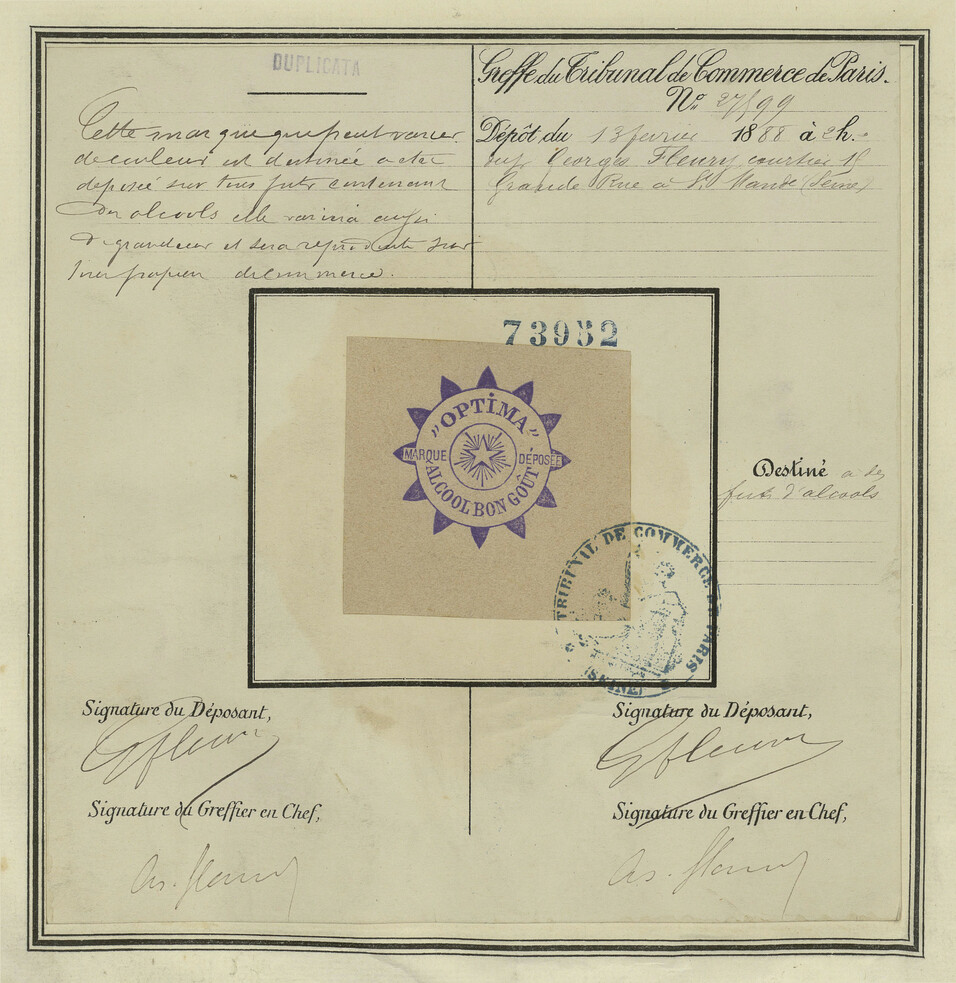 DUPLICATA
Cette marque qui peut varier
de couleur est destinée a etre
deposée sur tous futs contenant
des alcools elle variera aussi
de grandeur et sera reproduite sur
tous papiers de commerce.
Greffe du Tribunal de Commerce de Paris.
No. 27199
Dépôt du 13 fevrier 1888 à 2h.
Georges Fleury courtier 18
Grande Rue à St Mandé (Seine)
73952
"OPTIMA"
MARQUE DÉPOSÉE
ALCOOL BON GOÛT
Destiné a des
futs d'alcools
TRIBUNAL DE COMMERCE DE PARIS
(SEINE)
Signature du Déposant,
GFleury
Signature du Greffier en Chef,
Signature du Déposant,
GFleury
Signature du Greffier en Chef,